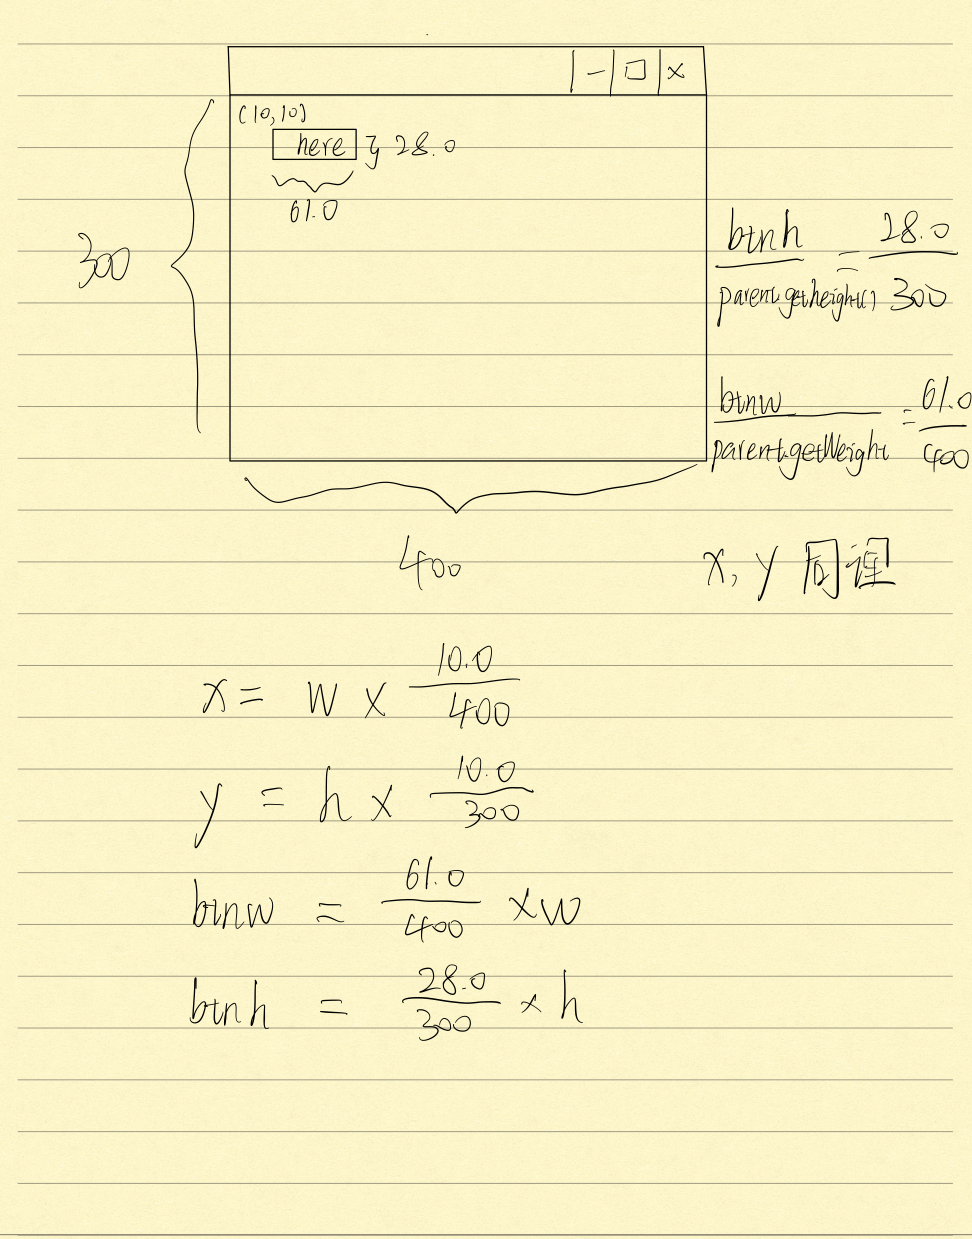 (10,10)
here } 28.0
61.0
300
btnh / parent.getheight() = 28.0 / 300
btnw / parent.getWeight = 61.0 / 400
400
x, y 同理
x = w × 10.0 / 400
y = h × 10.0 / 300
btnw = 61.0 / 400 × w
btnh = 28.0 / 300 × h